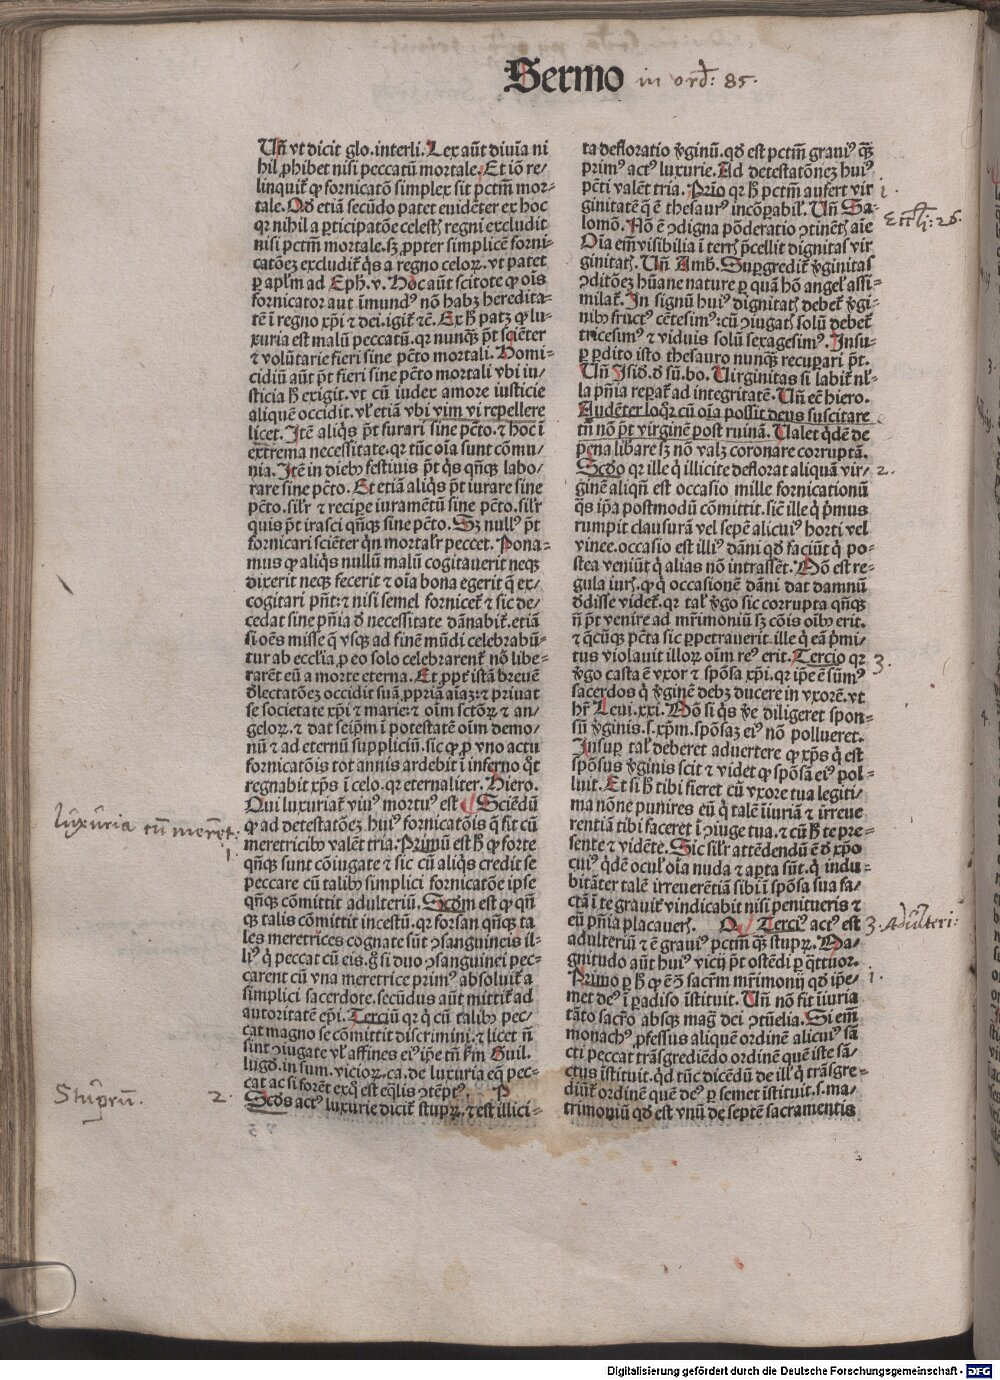 Sermo in ord: 85.
Uñ vt dicit glo. interli. Lex aūt diuīa ni
hil ꝓhibet nisi peccatū mortale. Et iō re/
linquit̄ ꝙ fornicatō simplex sit pctm̄ mor-
tale. Qd̄ etiā secūdo patet euidēter ex hoc
qꝛ nihil a participatōe celestꝭ regni excludit
nisi pctm̄ mortale. sꝫ ꝓpter simplicē forni-
catōeꝫ excludit̄ q̇s a regno celoꝝ. vt patet
ꝑ apl̄m ad Eph. v. Hoc aūt scitote ꝙ oīs
fornicator aut īmundꝰ nō habꝫ heredita-
tē ī regno xp̄i ⁊ dei. igit̄ ⁊c̄. Ex h̄ patꝫ ꝙ lu-
xuria est malū peccatū. qꝛ nunqꝫ pt̄ sciēter
⁊ volūtarie fieri sine pctō mortali. Homi-
cidiū aūt pt̄ fieri sine pctō mortali vbi iu/
sticia h̄ exigit. vt cū iudex amore iusticie
aliquē occidit. vl̄ etiā vbi vim vi repellere
licet. Itē aliq̇s pt̄ furari sine pctō. ⁊ hoc ī
extrema necessitate. qꝛ tūc oīa sunt cōmu/
nia. Itē in diebꝰ festiuis pt̄ q̇s qn̄qꝫ labo/
rare sine pctō. Et etiā aliq̇s pt̄ iurare sine
pctō. sil̄r ⁊ recipe iuramētū sine pctō. sil̄r
quis pt̄ irasci qn̄qꝫ sine pctō. Sꝫ nullꝰ pt̄
fornicari sciēter qn̄ mortal̄r peccet. Pona-
mus ꝙ aliq̇s nullū malū cogitauerit neqꝫ
dixerit neqꝫ fecerit ⁊ oīa bona egerit q̄ ex/
cogitari pn̄t: ⁊ nisi semel fornicet̄ ⁊ sic de/
cedat sine pn̄ia d̄ necessitate dānabit̄. etiā
si oēs misse q̄ vsqꝫ ad finē mūdi celebrabū-
tur ab eccl̄ia ꝓ eo solo celebrarent̄ nō libe-
rarēt eū a morte eterna. Et ꝓpt̄ istā breuē
d̄lectatōeꝫ occidit suā ꝓpriā aīaꝫ: ⁊ priuat
se societate xp̄i ⁊ marie: ⁊ oīm sctōꝝ ⁊ an/
geloꝝ. ⁊ dat seip̄m ī potestatē oīm demo/
nū ⁊ ad eternū suppliciū. sic ꝙ ꝓ vno actu
fornicatōis tot annis ardebit ī inferno q̇t
regnabit xp̄s ī celo. qꝛ eternaliter. Hiero.
Qui luxuriat̄ viuꝰ mortuꝰ est ¶ Sciēdū
ꝙ ad detestatōeꝫ huiꝰ fornicatōis q̄ fit cū
meretricibꝰ valēt tria. Primū est h̄ ꝙ forte
qn̄qꝫ sunt cōiugate ⁊ sic cū aliq̇s credit se
peccare cū talibꝰ simplici fornicatōe ipse
qn̄qꝫ cōmittit adulteriū. Scd̄m est ꝙ qn̄
qꝫ talis cōmittit incestū. qꝛ forsan qn̄qꝫ ta
les meretrices cognate sūt ꝯsanguineis il-
liꝰ q̇ peccat cū eis. g̊ si duo ꝯsanguinei pec-
carent cū vna meretrice primꝰ absoluit̄ a
simplici sacerdote. secūdus aūt mittit̄ ad
autoritatē ep̄i. Terciū qꝛ q̇ cū talibꝰ pec/
cat magno se cōmittit discrimini. ⁊ licet n̄
sint ꝯiugate vl̄ affines eiꝰ ip̄e tn̄ km̄ Guil.
lugd̄. in sum. vicioꝝ. ca. de luxuria eq̄ pec-
cat ac si forēt exq̊ est eq̄lis ꝯtēptꝰ. P
Scd̄s actꝰ luxurie dicit̄ stupꝝ. ⁊ est illici-
ta defloratio v̄ginū. qd̄ est pctm̄ grauiꝰ qꝫ
primꝰ actꝰ luxurie. Ad detestatōneꝫ huiꝰ
pcti valēt tria. Prīo qꝛ h̄ pctm̄ aufert vir
ginitatē q̄ ē thesaurꝰ incōꝑabil̄. Uñ Sa-
lomō. Nō ē ꝯdigna pōderatio ꝯtinētꝭ aīe
Oīa em̄ visibilia ī terrꝭ p̄cellit dignitas vir
ginitatꝭ. Uñ Amb. Suꝑgredit̄ v̄ginitas
ꝯditōeꝫ hūane nature ꝑ quā hō angel̄ assi-
milat̄. In signū huiꝰ dignitatꝭ debet̄ v̄gi-
nibꝰ fructꝰ cētesimꝰ: cū ꝯiugatꝭ solū debet̄
tricesimꝰ ⁊ viduis solū sexagesimꝰ. Insu-
ꝑ ꝑdito isto thesauro nunqꝫ recuꝑari pt̄.
Uñ Isid̄. d̄ sū. bo. Uirginitas si labit̄ nl̄-
la pn̄ia reparat̄ ad integritatē. Uñ eē hiero.
Audēter loqr̄ cū oīa possit deus suscitare
tn̄ nō pt̄ virginē post ruinā. Ualet qd̄ē de
pena libare sꝫ nō valꝫ coronare corruptā.
Scd̄o qꝛ ille q̇ illicite deflorat aliquā vir/
ginē aliqn̄ est occasio mille fornicationū
q̄s ip̄a postmodū cōmittit. sic̄ ille q̇ pͥmus
rumpit clausurā vel sepē alicuiꝰ horti vel
vinee. occasio est illiꝰ dāni qd̄ faciūt q̇ po-
stea veniūt q̇ alias nō intrassēt. Nō est re-
gula iurꝭ. ꝙ q̇ occasionē dāni dat damnū
d̄disse videt̄. qꝛ tal̄ v̄go sic corrupta qn̄qꝫ
n̄ pt̄ venire ad mr̄imoniū sꝫ cōis oībꝰ erit.
⁊ q̄cūqꝫ pctā sic ꝑpetrauerit. ille q̇ eā pͥmi/
tus violauit illoꝝ oīm reꝰ erit. Tercio qꝛ
v̄go casta ē vxor ⁊ spōsa xp̄i. qꝛ ip̄e ē sūmꝰ
sacerdos q̇ v̄ginē debꝫ ducere in vxorē. vt
hr̄ Leui. xxi. Nō si q̇s v̄e diligeret spon-
sū v̄ginis. s. xp̄m. spōsaꝫ eiꝰ nō pollueret.
Insuꝑ tal̄ deberet aduertere ꝙ xp̄s q̇ est
spōsus v̄ginis scit ⁊ videt ꝙ spōsā eiꝰ pol-
luit. Et si h̄ tibi fieret cū vxore tua legiti/
ma nōne punires eū q̇ talē iiuriā ⁊ irreue
rentiā tibi faceret ī ꝯiuge tua. ⁊ cū h̄ te pre-
sente ⁊ vidēte. Sic sil̄r attēdendū ē d̄ xp̄o
cuiꝰ qd̄ē ocul̄ oīa nuda ⁊ apta sūt. q̇ indu-
bitāter talē irreuerētiā sibi ī spōsa sua fa/
ctā ī te grauit̄ vindicabit nisi penitueris ⁊
eū pn̄ia placauerꝭ. Q ¶ Terciꝰ actꝰ est
adulteriū ⁊ ē grauiꝰ pctm̄ qꝫ stupꝝ. Ma/
gnitudo aūt huiꝰ vicij pt̄ ostēdi ꝑ q̄ttuor.
Primo ꝑ h̄ ꝙ ē ꝯ̄ sacr̄m mr̄imonij qd̄ ip̄e-
met deꝰ ī paradiso īstituit. Uñ nō fit iiuria
tāto sacr̄o absqꝫ maḡ dei ꝯtūelia. Si em̄
monachꝰ ꝓfessus aliquē ordinē alicuiꝰ sā
cti peccat trāsgrediēdo ordinē quē iste sā/
ctus īstituit. qd̄ tūc dicēdū de ill̄ q̇ trāsgre-
diūt̄ ordinē quē deꝰ ꝑ semet īstituit. s. ma/
trimoniū qd̄ est vnū de septē sacramentis
luxuria cū meret:
1.
Stuprū. 2.
1.
Eccli: 26.
2.
3.
3. Adulteri:
1.
Digitalisierung gefördert durch die Deutsche Forschungsgemeinschaft - DFG